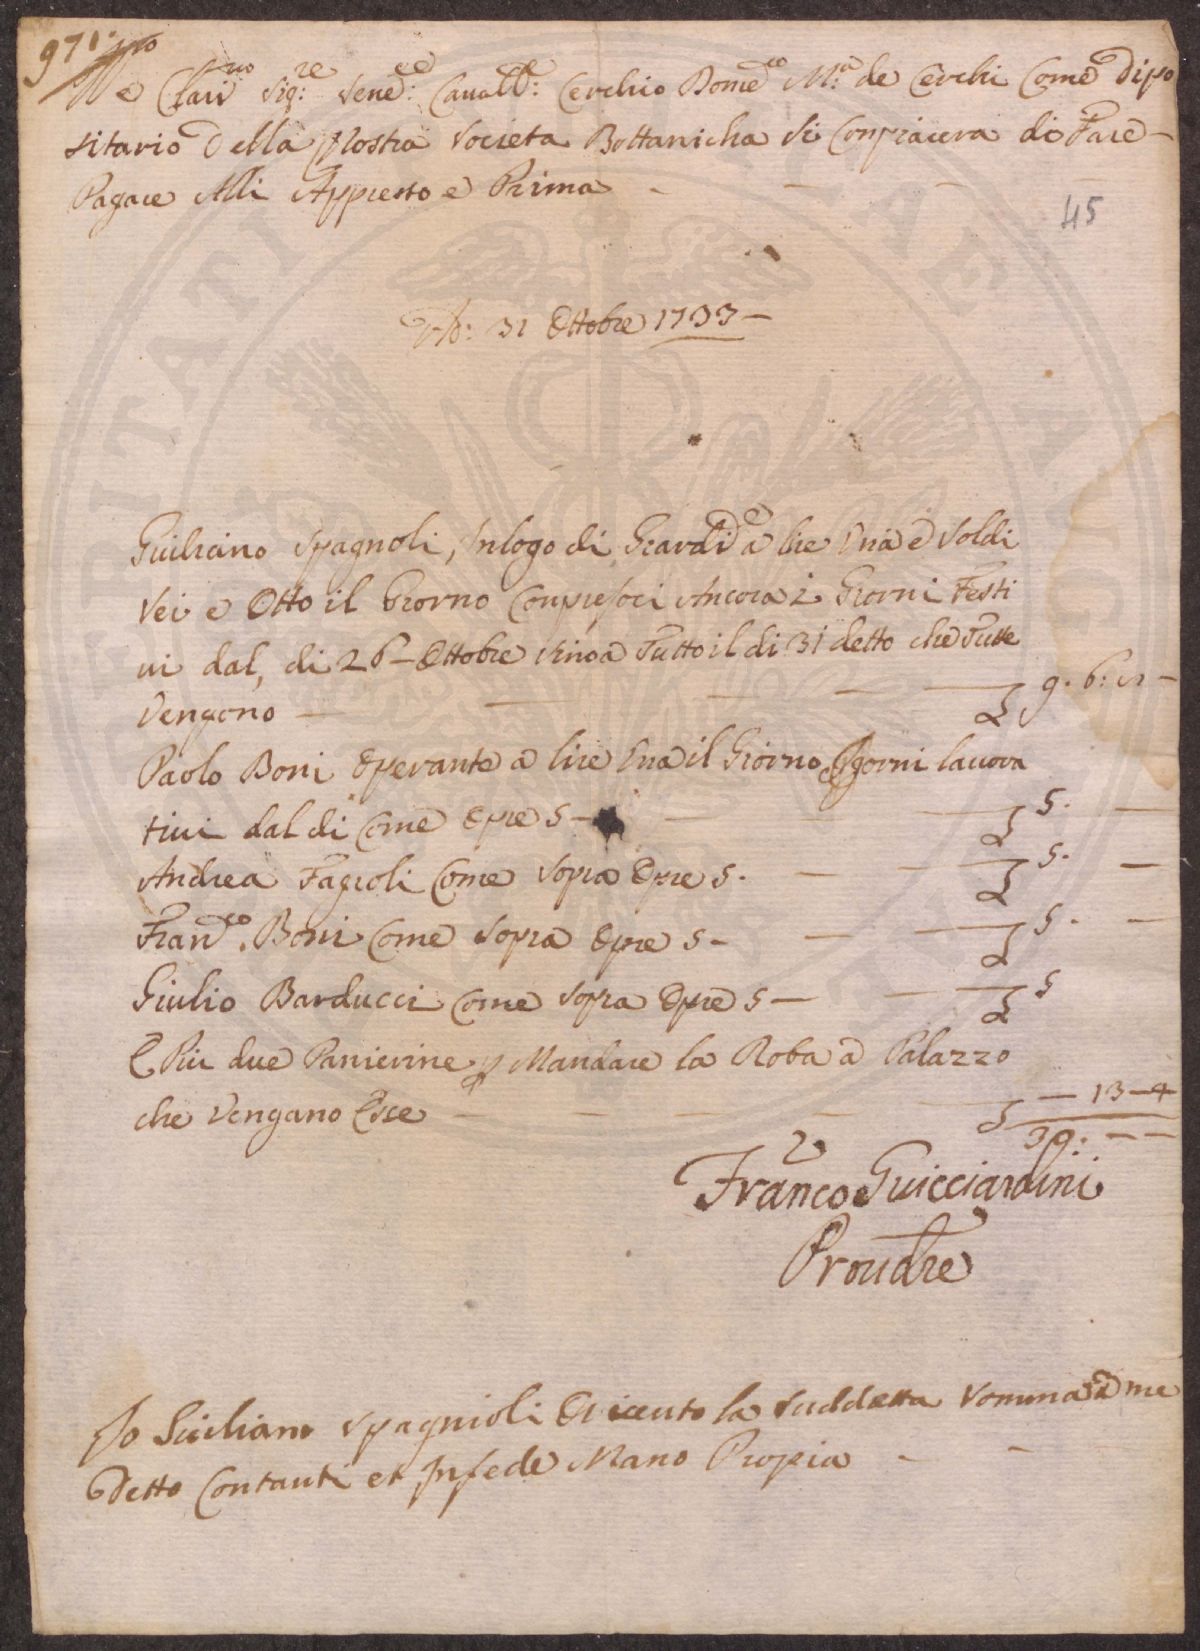 971
Ill.mo
e Clari.mo Sig.re Sene.re Cavall.re Cerchio Dome.co M.a de Cerchi Come Dipo
sitario Della Nostra Societa Bottanicha Si Conpiacera di Fare
Pagare Alli Appresso e Prima
45
31 Ottobre 1733
Giuliano Spagnoli, in logo di Giardi.e a lire Una e Soldi
Sei e Otto il Giorno Conpresoci Ancora 2 Giorni Festi
vi dal, di 26 - Ottobre Sino a Tutto il di 31 detto che Tutte
Vengono - - - - £ 9. 6: 8 -
Paolo Boni Operante a lire Una il Giorno Giorni lavora
tivi dal di Come Opre 5 - - - £ 5. -
Andrea Fagioli Come Sopra Opre 5. - - £ 5. -
Fran.co Boni Come Sopra Opre 5 - - - £ 5. -
Giulio Barducci Come Sopra Opre 5 - - - £ 5
E Piu due Panierine p Mandare la Roba a Palazzo
che Vengano Esse - - - - £ - 13 - 4
30. - -
Franco Guicciardini
Proved.re
Io Giuliano Spagnioli O riceuto la Suddetta Somma a me
Detto Contanti et In fede Mano Propia -